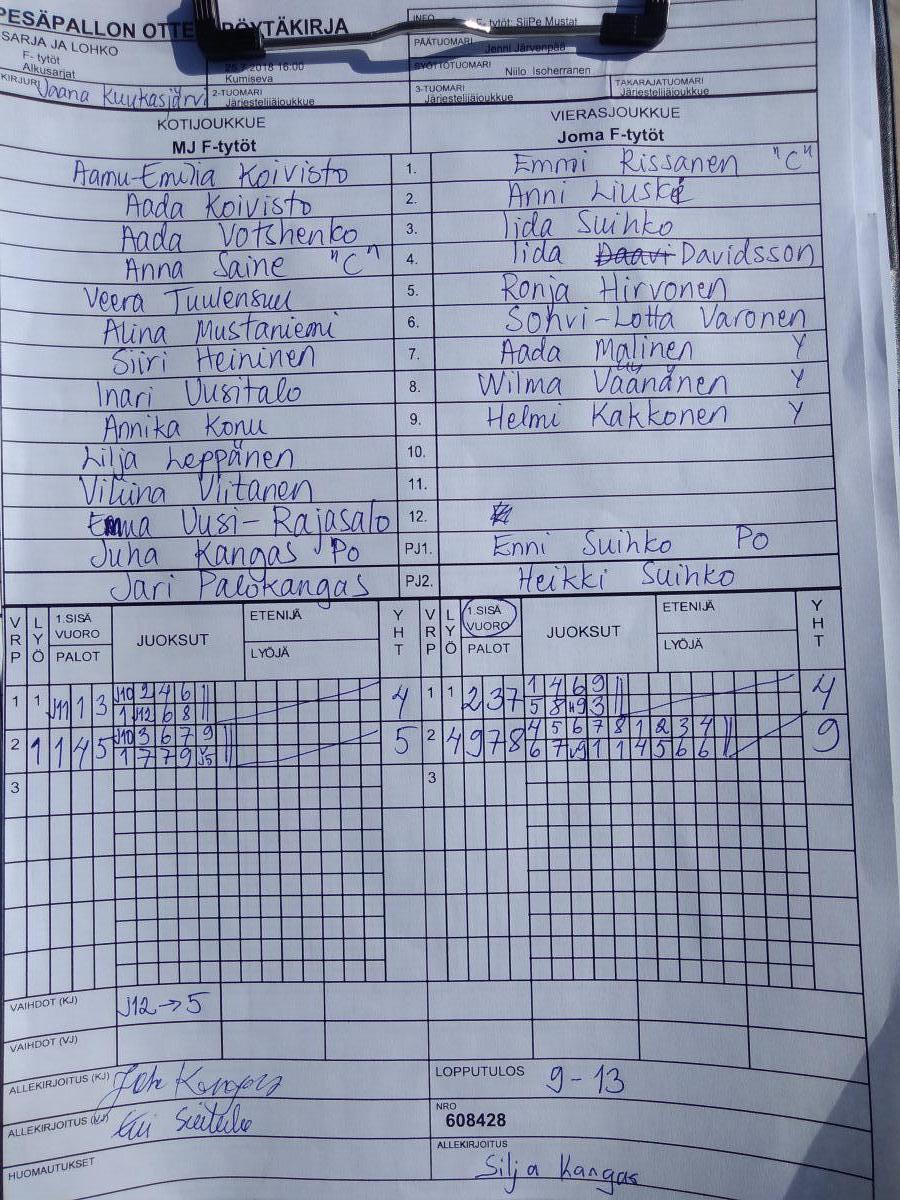 PESÄPALLON OTTE PÖYTÄKIRJA
SARJA JA LOHKO
F- tytöt
Alkusarjat
KIRJURI Jaana Kuukasjärvi
25.7.2018 16:00
Kumiseva
2-TUOMARI
Järjestelijäjoukkue
INFO F- tytöt: SiiPe Mustat
PÄÄTUOMARI
Jenni Järvenpää
SYÖTTÖTUOMARI Niilo Isoherranen
3-TUOMARI
Järjestelijäjoukkue
TAKARAJATUOMARI
Järjestelijäjoukkue
KOTIJOUKKUE VIERASJOUKKUE
MJ F-tytöt Joma F-tytöt
Aamu-Emilia Koivisto 1. Emmi Rissanen "C"
Aada Koivisto 2. Anni Liuski
Aada Votshenko 3. Iida Suihko
Anna Saine "C" 4. Iida Daavi Davidsson
Veera Tuulensuu 5. Ronja Hirvonen
Alina Mustaniemi 6. Sohvi-Lotta Varonen
Siiri Heininen 7. Aada Malinen Y
Inari Uusitalo 8. Wilma Väänänen Y
Annika Konu 9. Helmi Kakkonen Y
Lilja Leppänen 10.
Viliina Viitanen 11.
Emma Uusi-Rajasalo 12.
Juha Kangas Po PJ1. Enni Suihko Po
Jari Palokangas PJ2. Heikki Suihko
VRP LYÖ 1.SISÄ VUORO PALOT JUOKSUT ETENIJÄ LYÖJÄ YHT VRP LYÖ 1.SISÄ VUORO PALOT JUOKSUT ETENIJÄ LYÖJÄ YHT
1 1 J11 1 3 J10 2 4 6 4 1 1 2 3 7 1 4 6 9 4
1 J12 6 8 5 8 H9 3
2 1 1 4 5 J10 3 6 7 9 5 2 4 9 7 8 4 5 6 7 8 1 2 3 4 9
1 7 7 9 J5 6 7 J9 1 1 4 5 6 6
3 3
VAIHDOT (KJ) J12→5
VAIHDOT (VJ)
ALLEKIRJOITUS (KJ) LOPPUTULOS 9-13
ALLEKIRJOITUS (VJ) NRO
608428
HUOMAUTUKSET ALLEKIRJOITUS
Silja Kangas